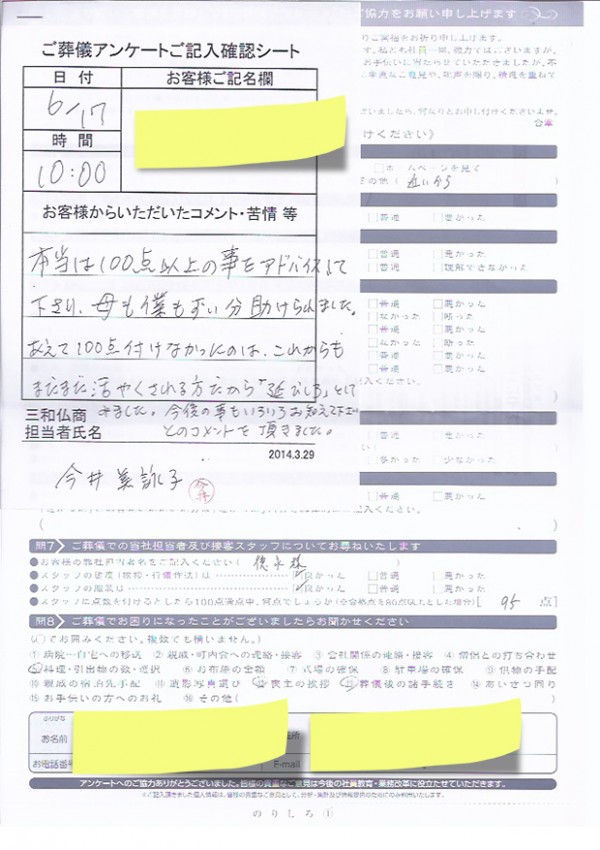 ご協力をお願い申し上げます
ご葬儀アンケートご記入確認シート
日付
お客様ご記名欄
6/17
時間
10:00
お客様からいただいたコメント・苦情 等
本当は100点以上の事をアドバイスして
下さり、母も僕もずい分助けられました。
あえて100点付けなかったのは、これからも
まだまだ活やくされる方だから「延びしろ」として
みました。今後の事もいろいろお教えて下さい
とのコメントを頂きました。
三和仏商
担当者氏名
2014.3.29
今井 美詠子
今井
けください》
ホームページを見て
の他( 近いから
普通 悪かった
普通 悪かった
普通 理解できなかった
普通 悪かった
なかった 断った
普通 悪かった
なかった 断った
普通 悪かった
普通 悪かった
普通 悪かった
多かった 少なかった
普通 悪かった
問7 ご葬儀での当社担当者及び接客スタッフについてお尋ねいたします
●お客様の弊社担当者名をご記入ください( 徳永様 )
●スタッフの態度(挨拶・行儀作法)は 良かった 普通 悪かった
●スタッフの服装は 良かった 普通 悪かった
●スタッフに点数を付けるとしたら100点満点中、何点でしょうか(※合格点を80点以上とした場合)[ 95 点]
問8 ご葬儀でお困りになったことがございましたらお聞かせください
(○でお囲みください。複数でも構いません。)
①病院→自宅への移送 ②親戚・町内会への連絡・接客 ③会社関係の連絡・接客 ④僧侶との打ち合わせ
⑤料理・引出物の数・選択 ⑥お布施の金額 ⑦式場の確保 ⑧駐車場の確保 ⑨供物の手配
⑩親戚の宿泊先手配 ⑪遺影写真選び ⑫喪主の挨拶 ⑬葬儀後の諸手続き ⑭あいさつ回り
⑮お手伝いの方へのお礼 ⑯その他(
お名前
お電話番号
E-mail
アンケートへのご協力ありがとうございました。皆様の貴重なご意見は今後の社員教育・業務改革に役立たせていただきます。
のりしろ①